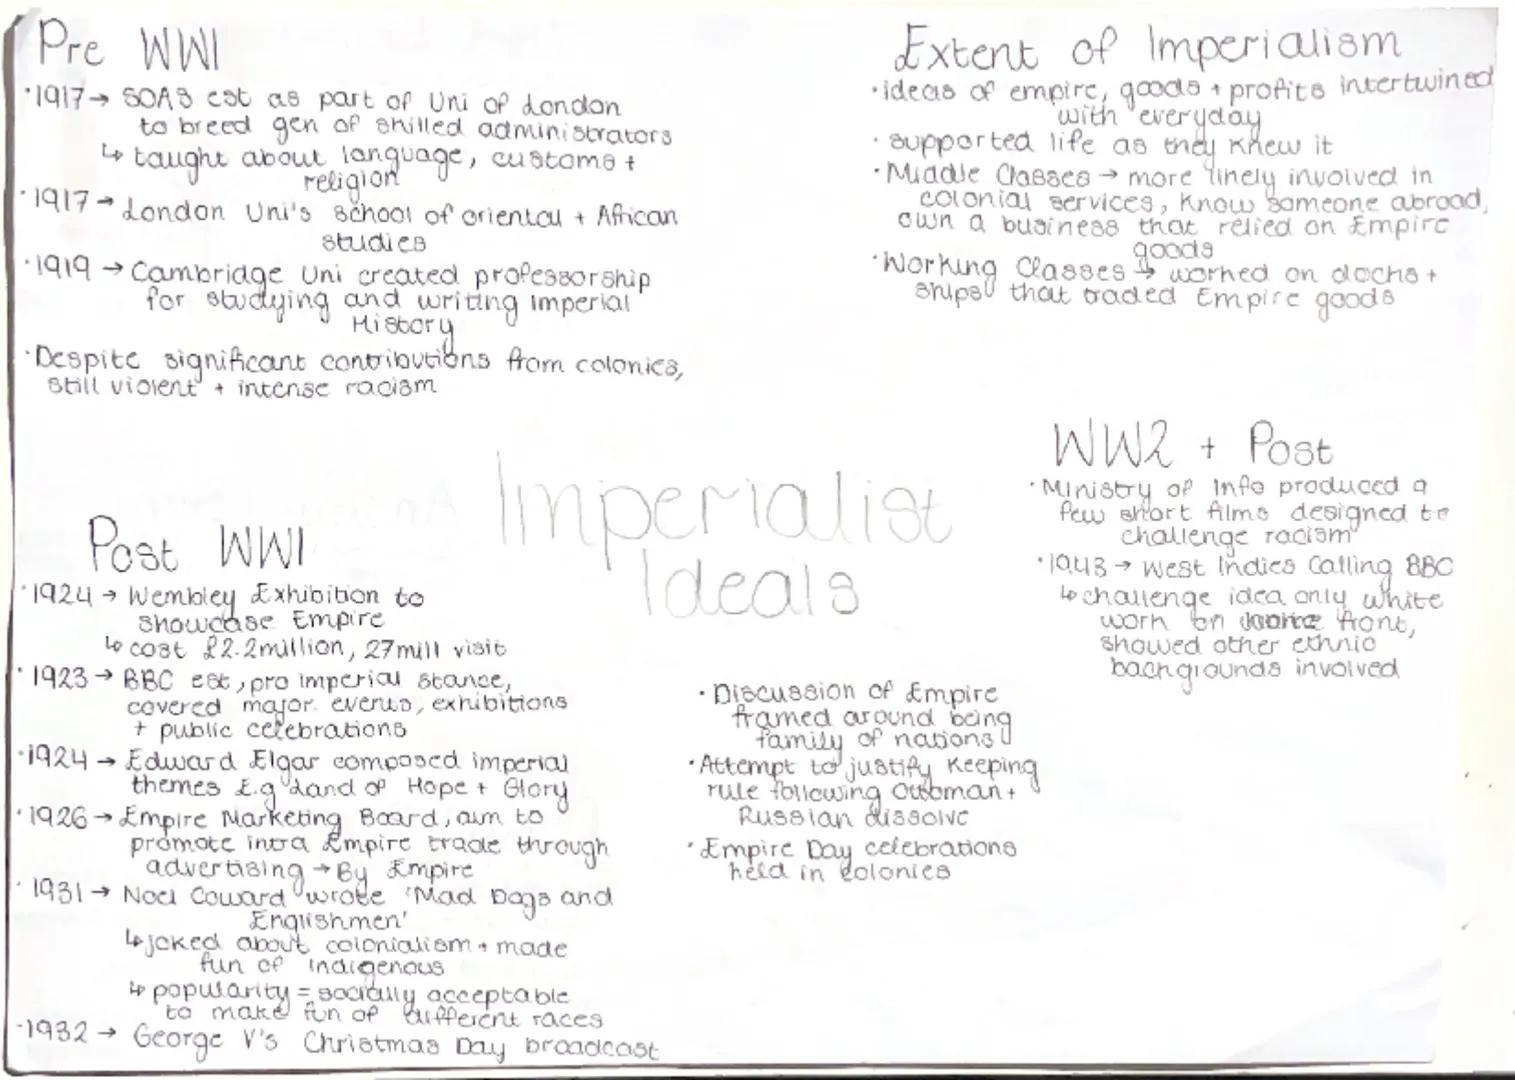 Pre WWI
·1917→ SOAS est as part of Uni of London
to breed gen of skilled administrators
↳ taught about language, customs +
religion
·1917→ London Uni's school of oriental + African
studies
·1919 → Cambridge Uni created professorship
for studying and writing imperial
History
·Despite significant contributions from colonies,
still violent + intense racism
Extent of Imperialism
·ideas of empire, goods + profits intertwined
with everyday
· supported life as they knew it
·Middle Classes → more likely involved in
colonial services, know someone abroad,
own a business that relied on Empire
goods
·Working Classes ↳ worked on docks +
ships that traded Empire goods
Imperialist
Ideals
WW2 + Post
·Ministry of Info produced a
few short films designed to
challenge racism
·1943 → West Indies Calling BBC
↳ challenge idea only white
work on home front,
showed other ethnic
backgrounds involved
Post WWI
·1924 → Wembley Exhibition to
showcase Empire
↳ cost £2.2million, 27mill visit
·1923 → BBC est, pro imperial stance,
covered major events, exhibitions
+ public celebrations
·1924 → Edward Elgar composed imperial
themes E.g Land of Hope + Glory
·1926 → Empire Marketing Board, aim to
promote intra Empire trade through
advertising → By Empire
·1931 → Noel Coward wrote 'Mad Dogs and
Englishmen'
↳ joked about colonialism + made
fun of indigenous
↳ popularity = socially acceptable
to make fun of different races
·1932 → George V's Christmas Day broadcast
·Discussion of Empire
framed around being
family of nations
·Attempt to justify keeping
rule following Ottoman +
Russian dissolve
·Empire Day celebrations
held in colonies